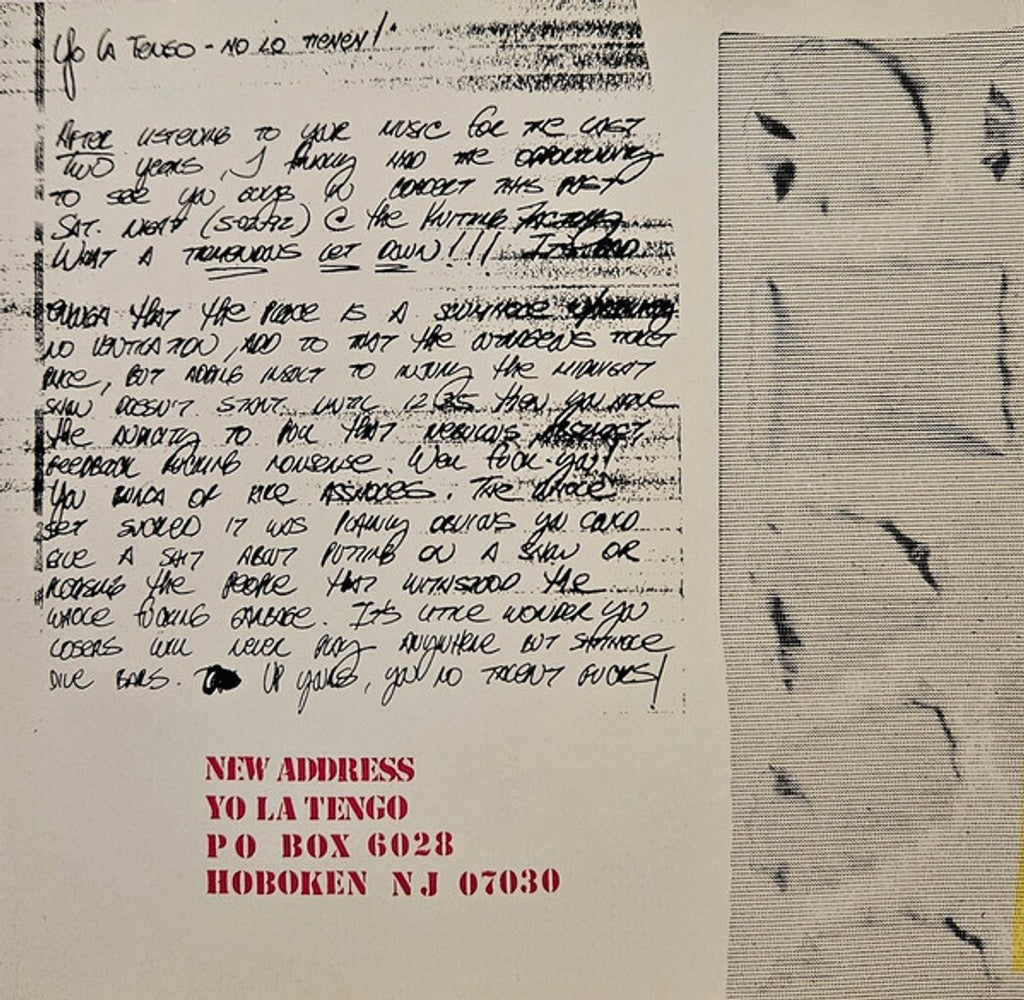 Yo La Tengo - No Lo Tienen!
After listening to your music for the last
two years, I finally had the opportunity
to see you guys in concert this past
Sat. night (5-02-92) @ the Knitting Factory.
What a tremendous let down!!!
that the place is a scumhole
no ventilation, add to that the outrageous ticket
price, but adding insult to injury the midnight
show doesn't start until 12:35 then you have
the audacity to pull that nebulous abstract
feedback fucking nonsense. Well fuck you!
You bunch of assholes. The whole
set sucked it was plainly obvious you could
give a shit about putting on a show or
pleasing the people that withstood the
whole fucking garbage. It's little wonder you
losers will never play anywhere but shithole
dive bars. Up yours, you no talent fucks!
NEW ADDRESS
YO LA TENGO
PO BOX 6028
HOBOKEN NJ 07030